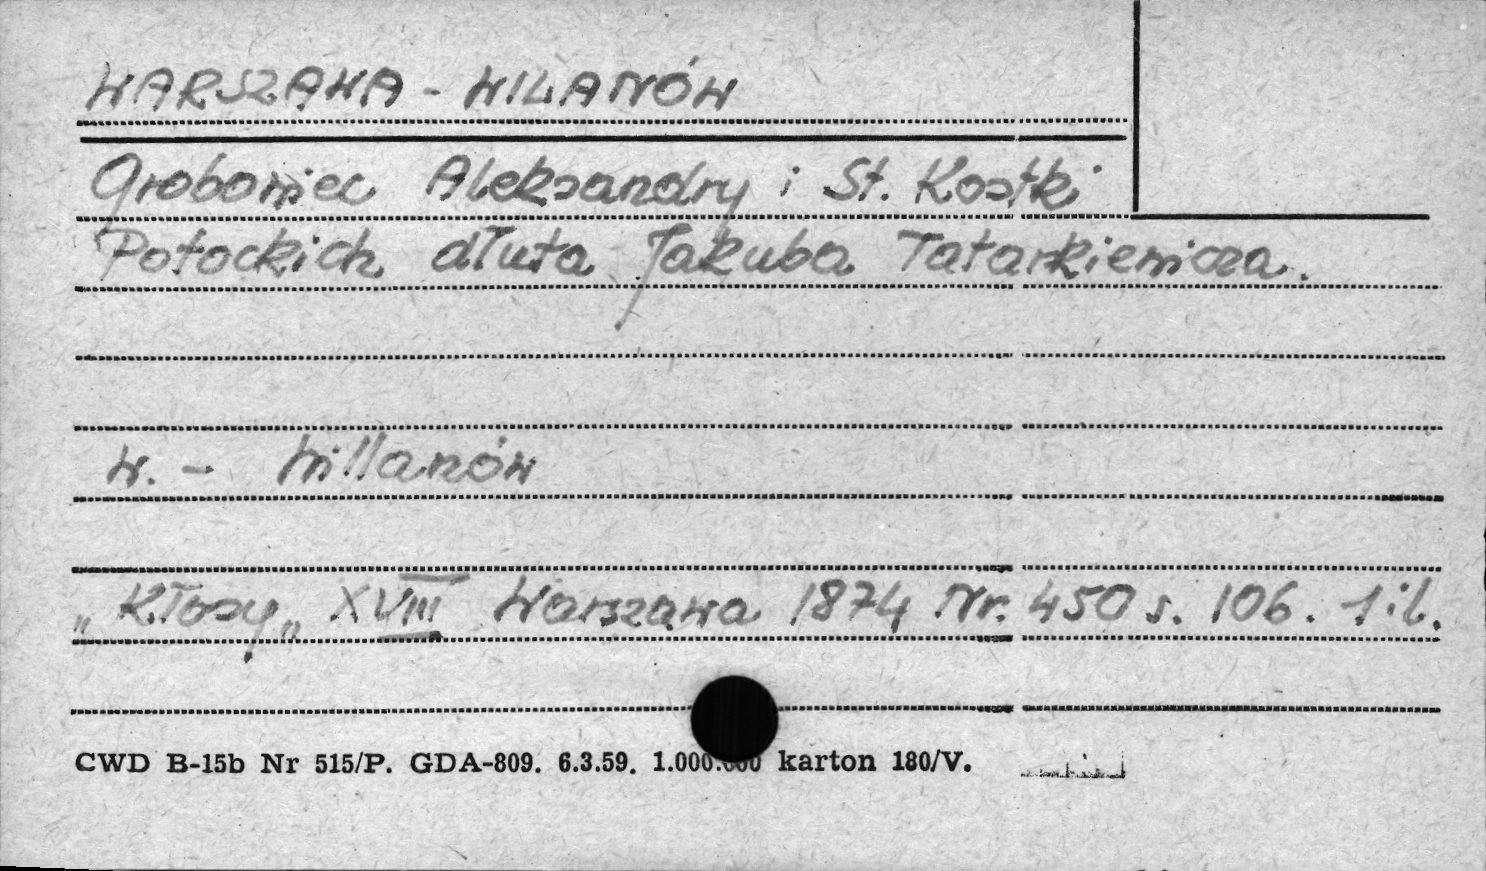 WARSZAWA - WILANÓW
Grobowiec Aleksandry i St. Kostki
Potockich dłuta Jakuba Tatarkiewicza.
W. - Willanów
„Kłosy„ XVIII Warszawa 1874 Nr. 450 s. 106. 1 il.
CWD B-15b Nr 515/P. GDA-809. 6.3.59. 1.000.000 karton 180/V.